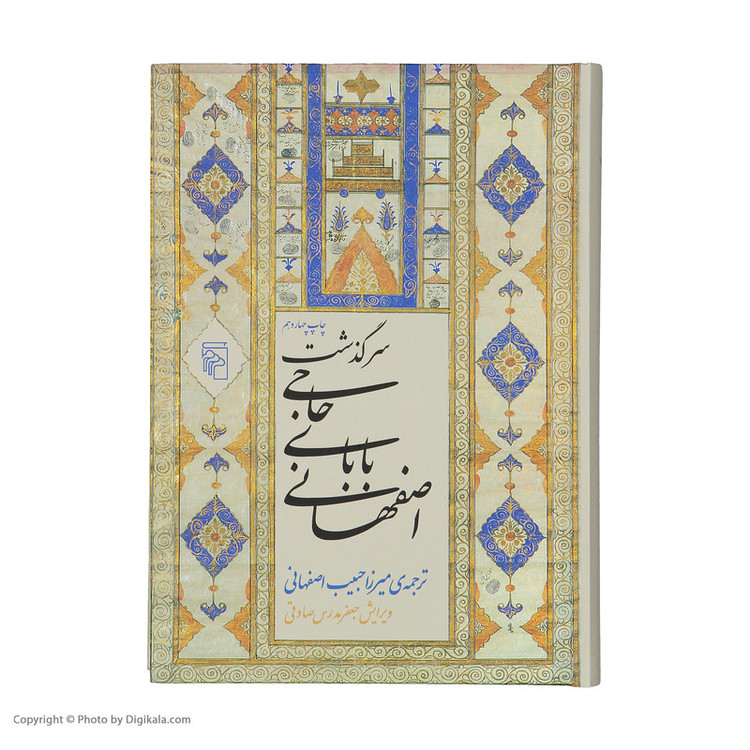 چاپ چهاردهم
سرگذشت
حاجی
بابای
اصفهانی
ترجمه‌ی میرزا حبیب اصفهانی
ویرایش جعفر مدرس صادقی
Copyright © Photo by Digikala.com